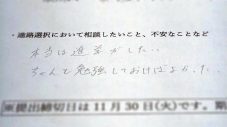 ・進路選択において相談したいこと、不安なことなど
本当は進学がした..
ちゃんと勉強しておけばよかった..
※提出締切日は11月30日(火)です。期